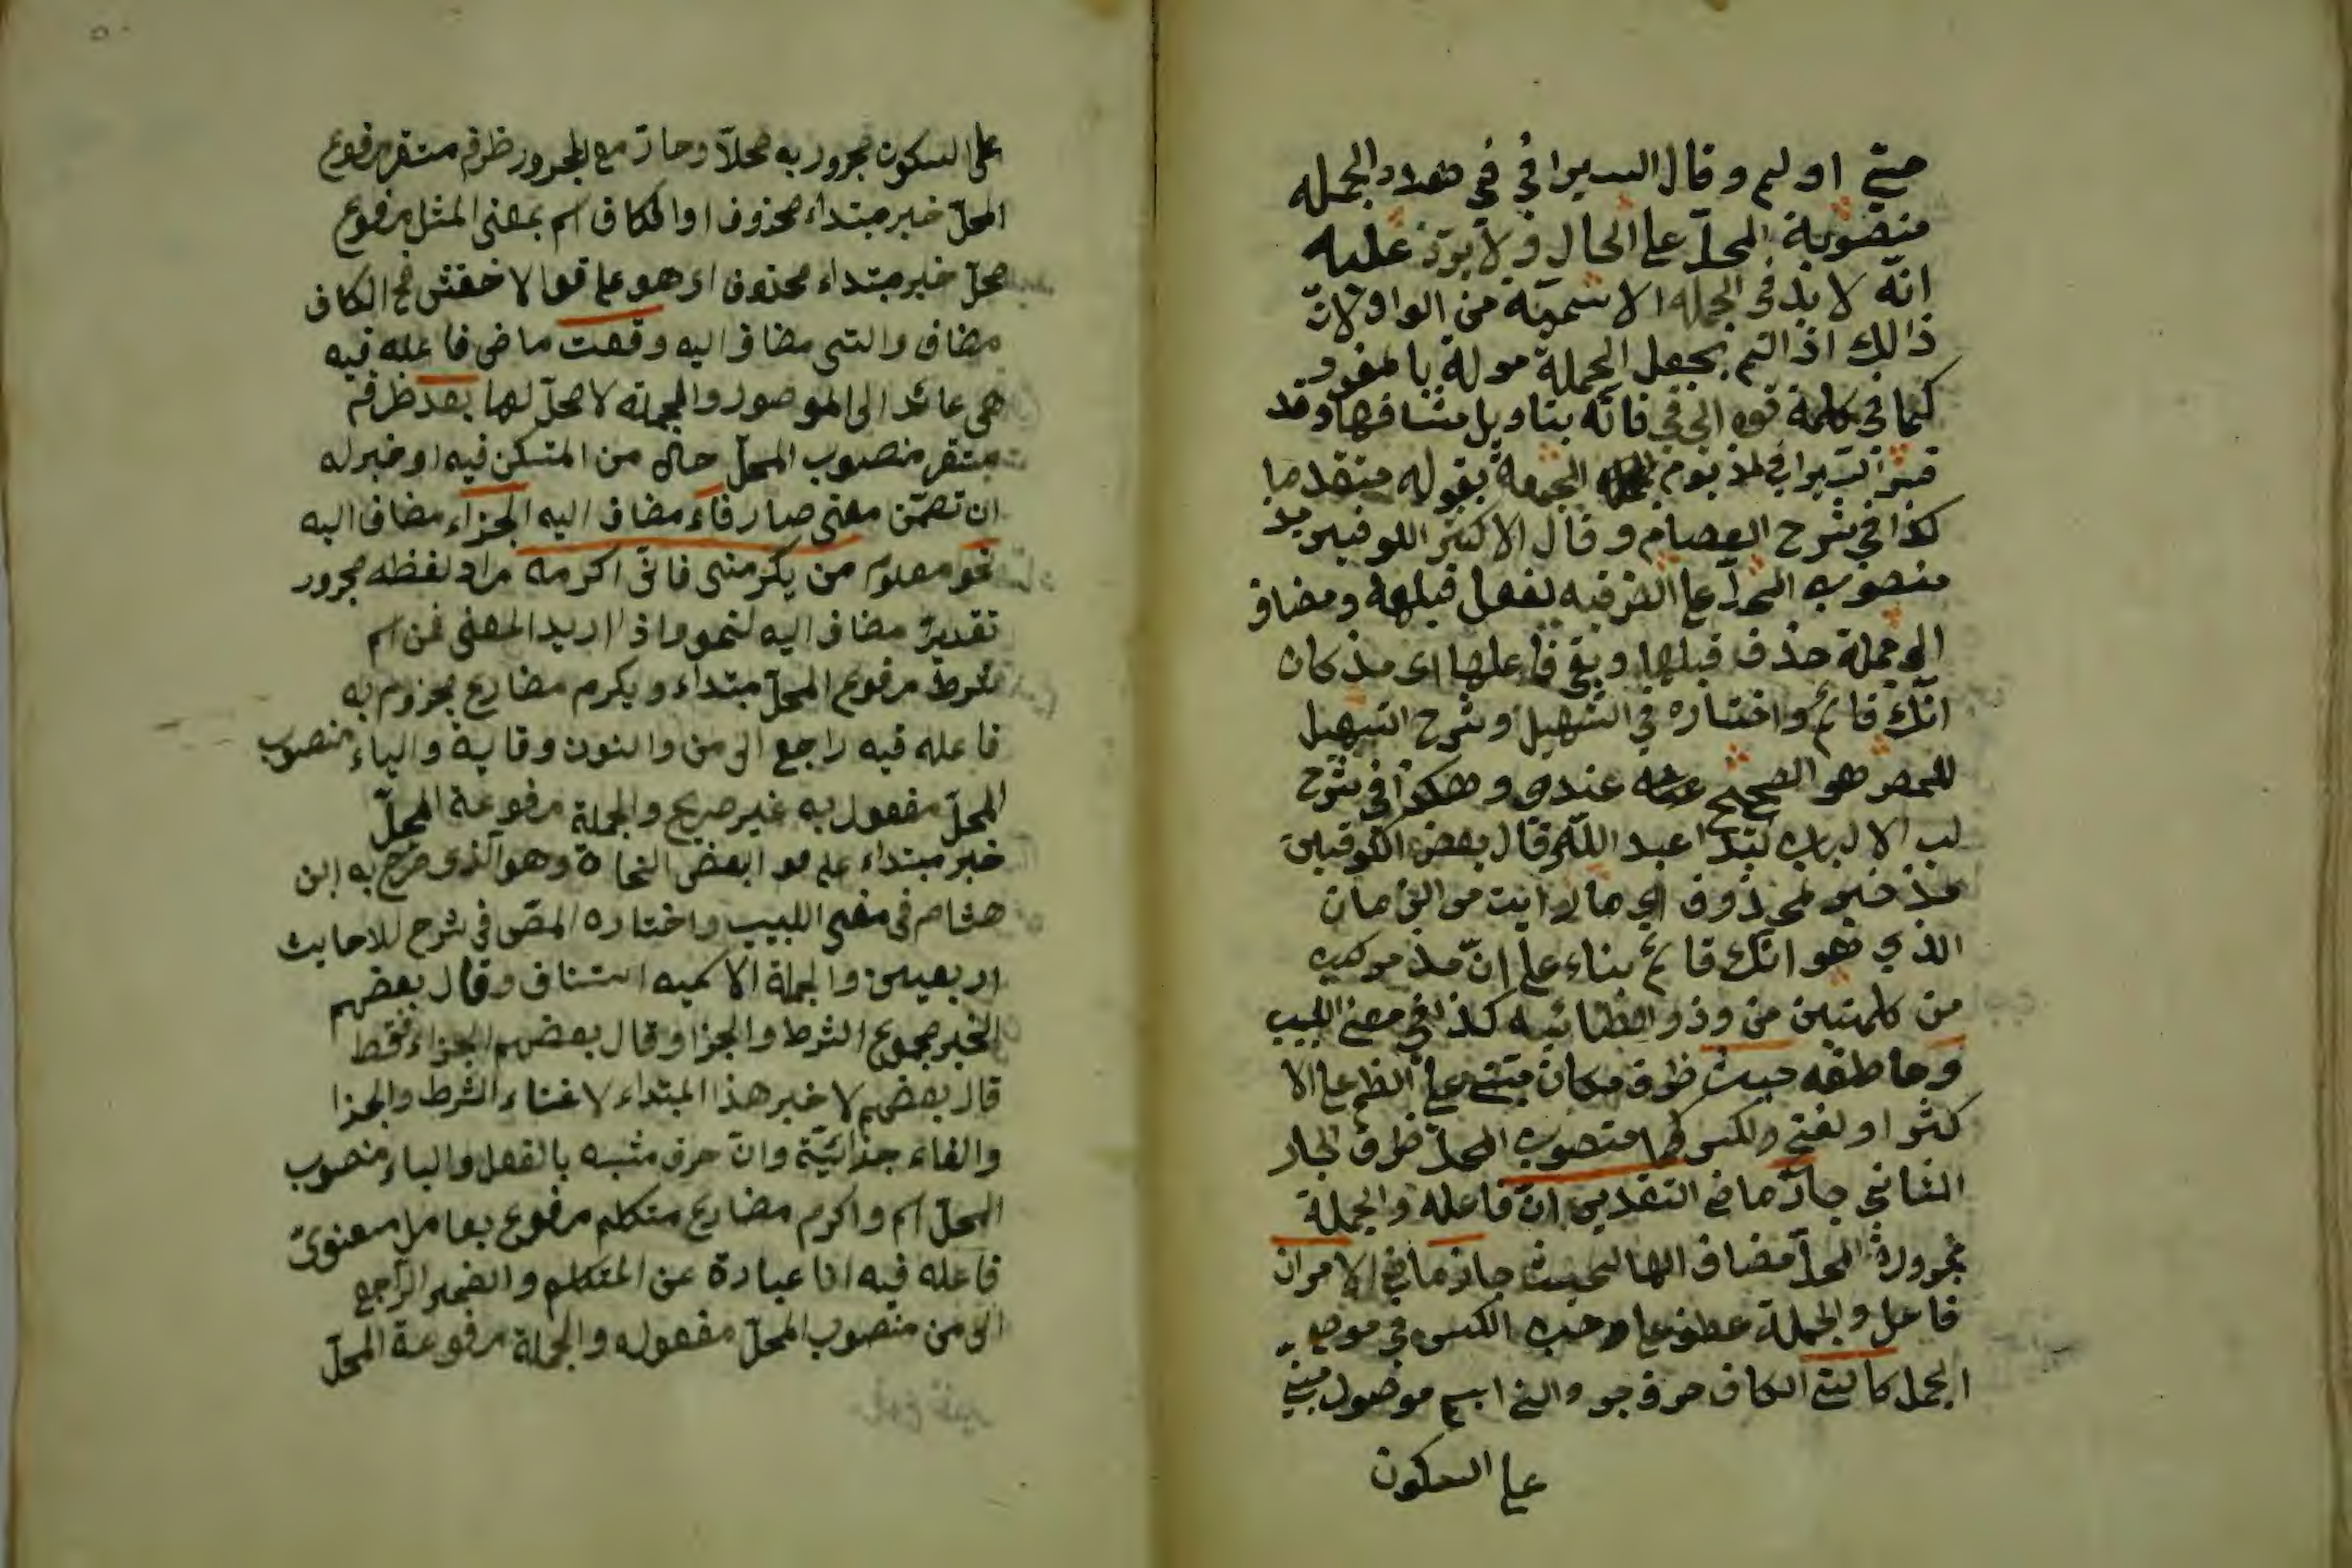 حتى اوليم وقال السيرافي في هذه الجمله
منصوبة المحلّ على الحال ولا يرد عليه
انّه لا بد في الجمله الاسمية من الواو لانّ
ذالك اذا لتم يجعل الجملة مولة بالمفرد
كما في كلمة فوه الى في فانّه بتاويل مشافها وقد
السيرافي مذ يوم الجمعة بقوله متقدما
كذا في شرح العصام وقال الاكثر الكوفيين مذ
منصوب المحلّ على الظرفيه لفعل قبلها ومضاف
الى جملة حذف فبلها وبقى فاعلها اى مذ كان
انّك قائم واختاره في التسهيل وشرح التسهيل
للمصر هو الصحيح عندى وهكذا في شرح
لب الالباب عبد اللّه وقال بعض الكوفيين
مذ خبر محذوف اي ما رايت من الزمان
الذي هو انّك قائم بناء على انّ مذ مركبه
من كلمتين من وذو الطائيه كذا في مغنى اللبيب
وعاطفه حيث ظرف مكان مبنى على الضم على الا
كثر او لفتح والكسر كما منصوب المحلّ ظرف لجار
الثاني جاز ماض التقديرين انّ فاعله والجملة
مجرورة المحلّ مضاف الها لحيث جاز ماض الامران
فاعل والجملة عطف على وجب الكسر في موضع
الجمل كالتى الكاف حرف جر والتى اسم موصول مبنى
على السكون
على السكون مجرور به محلاّ وجارّ مع المجرور ظرف مستقر مرفوع
المحلّ خبر مبتداء محذوف او الكاف اسم بمعنى المثل مرفوع
محلّ خبر مبتداء محذوف اى هو على قول الاخفش الكاف
مضاف والتى مضاف اليه وقعت ماضى فاعله فيه
هى عائد الى الموصول والجملة لا محلّ لها بعد ظرف
مستقر منصوب المحلّ حال من المتسكن فيه او خبر له
ان تضمّن معنى صار فاء مضاف اليه الجزاء مضاف اليه
نحو معلوم من يكرمنى فانى اكرمه مراد لفظه مجرور
تقديرٌ مضاف اليه لنحو واذ اريد المعنى فمن اسم
شرط مرفوع المحلّ مبتداء ويكرم مضارع مجزوم به
فاعله فيه راجع الى من والنون وقاية والياء منصوب
المحلّ مفعول به غير صريح والجملة مرفوعة المحلّ
خبر مبتداء على بعض النحاة وهو الّذى صرح به ابن
هشام في مغنى اللبيب واختاره المصّ في شرح للاحايث
اربعين والجملة الاسميه استناف وقال بعضهم
الخبر مجموع الشرط والجزا وقال بعضهم الجزاء فقط
قال بعضهم لا خبر هذا المبتداء لا غناء الشرط والجزا
والفاء جزائيّة وانّ حرف مشبه بالفعل والياء منصوب
المحلّ اسم واكرم مضارع متكلم مرفوع بعامل معنوىّ
فاعله فيه انا عبارة عن المتكلم والضمير الراجع
الى من منصوب المحلّ مفعوله والجملة مرفوعة المحلّ